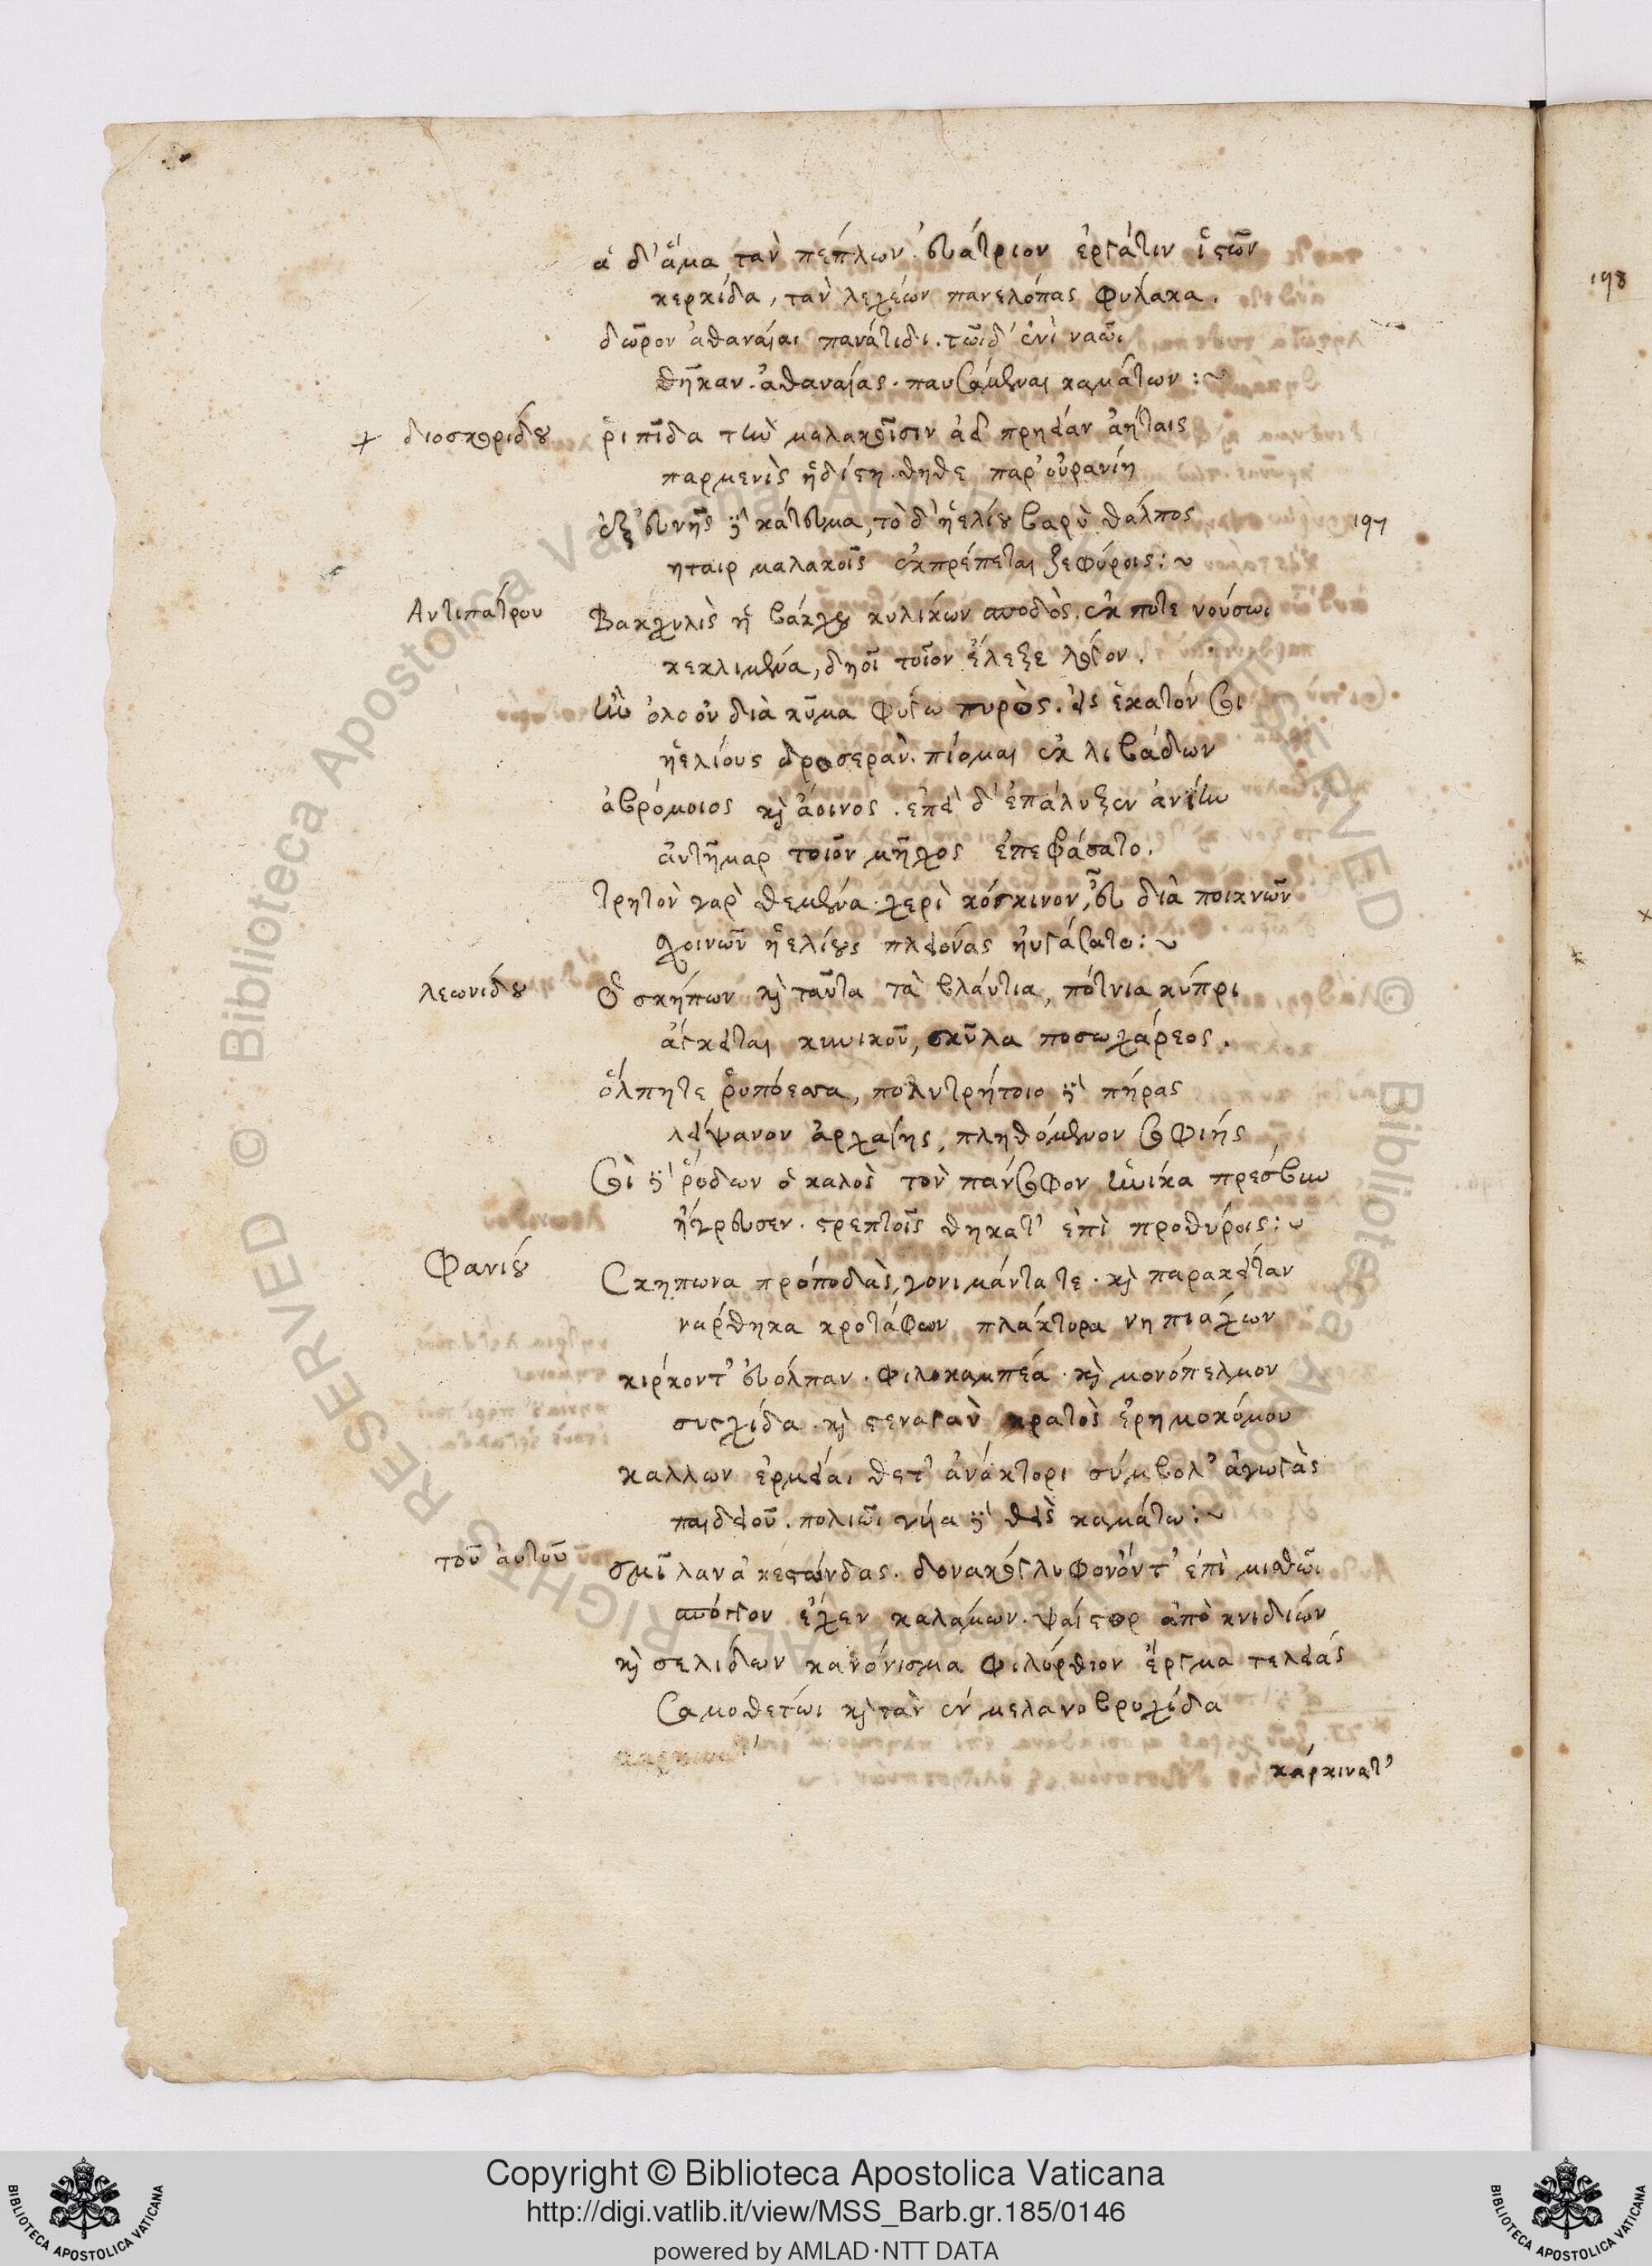 198
ἁ δ' ἅμα τὰν πέπλων εὐάτριον ἐργάτιν ἱστῶν
κερκίδα, τὰν λεχέων πανελόπας φύλακα.
δῶρον ἀθαναίαι πανάτιδι. τῶιδ' ἐνὶ ναῶι
θῆκαν. ἀθαναίας. παυσάμεναι καμάτων :~
διοσκορίδου
ῥιπίδα τὴν μαλακοῖσιν ἀεὶ πρηεῖαν ἀήταις
παρμενὶς ἡδίστη. θηθε παρ' οὐρανίη
ἐξ εὐνῆς δεκάτευμα, τὸ δ' ἡελίου βαρὺ θάλπος
197
ηταιρ μαλακοῖς ἐκπρέπεται ζεφύροις :~
Αντιπάτρου
Βακχυλὶς ἡ βάκχου κυλίκων σποδὸς. ἔκ ποτε νούσωι
κεκλιμένα, δηοῖ τοῖον ἔλεξε λόγον.
ἢν ὀλοὸν διὰ κῦμα φύγω πυρὸς. εἰς ἑκατόν σοι
ἡελίους δροσερᾶν. πίομαι ἐκ λιβάδων
ἀβρόμοιος καὶ ἄοινος. ἐπεὶ δ' ἐπάλυξεν ἀνίην
ἀντῆμαρ τοῖον μῆχος ἐπεφράσατο.
τρητὸν γὰρ θεμένα χερὶ κόσκινον, εὖ διὰ ποικνῶν
χοινῶν ἡελίους πλείονας ηὐγάσατο :~
λεωνίδου
Ὁ σκήπων καὶ ταῦτα τὰ βλάντια, πότνια κύπρι
ἄγκειται κυνικοῦ, σκῦλα ποσωχάρεος.
ὄλπητε ῥυπόεσσα, πολυτρήτοιο δὲ πήρας
λείψανον ἀρχαίης, πληθόμενον σοφιής
σοὶ δὲ ῥόδων ὁ καλὸς τὸν πάνσοφον ἡνίκα πρέσβυν
ἤγρευσεν. στεπτοῖς θήκατ' ἐπὶ προθύροις :~
Φανίου
Σκήπωνα πρόποδας, γονιμάντατε. καὶ παρακείταν
νάρθηκα κροτάφων πλάκτορα νηπιάχων
κιρκοντ' εὐόλπαν. φιλοκαμπέα. καὶ μονόπελμον
συγχίδα. καὶ στεναγὰν κρατὸς ἐρημοκόμου
καλλων ἑρμείαι θετ' ἀνάκτορι σύμβολ' ἀγωγὰς
παιδείου. πολιῶι γυῖα δεθεὶς καμάτω :~
τοῦ αὐτοῦ
σμῖλαν ἀκεστώνδας. δονακόγλυφον ὅντ' ἐπὶ μισθῶι
σπόγγον ἔχεν καλάμων. ψαίστορ ἀπὸ κνιδίων
καὶ σελίδων κανόνισμα φιλόρθιον ἔργμα τελείας
Σαμοθετῶι καὶ τὰν ἐν μελανοβροχίδα
κάρκινατ'
Copyright © Biblioteca Apostolica Vaticana
http://digi.vatlib.it/view/MSS_Barb.gr.185/0146
powered by AMLAD·NTT DATA